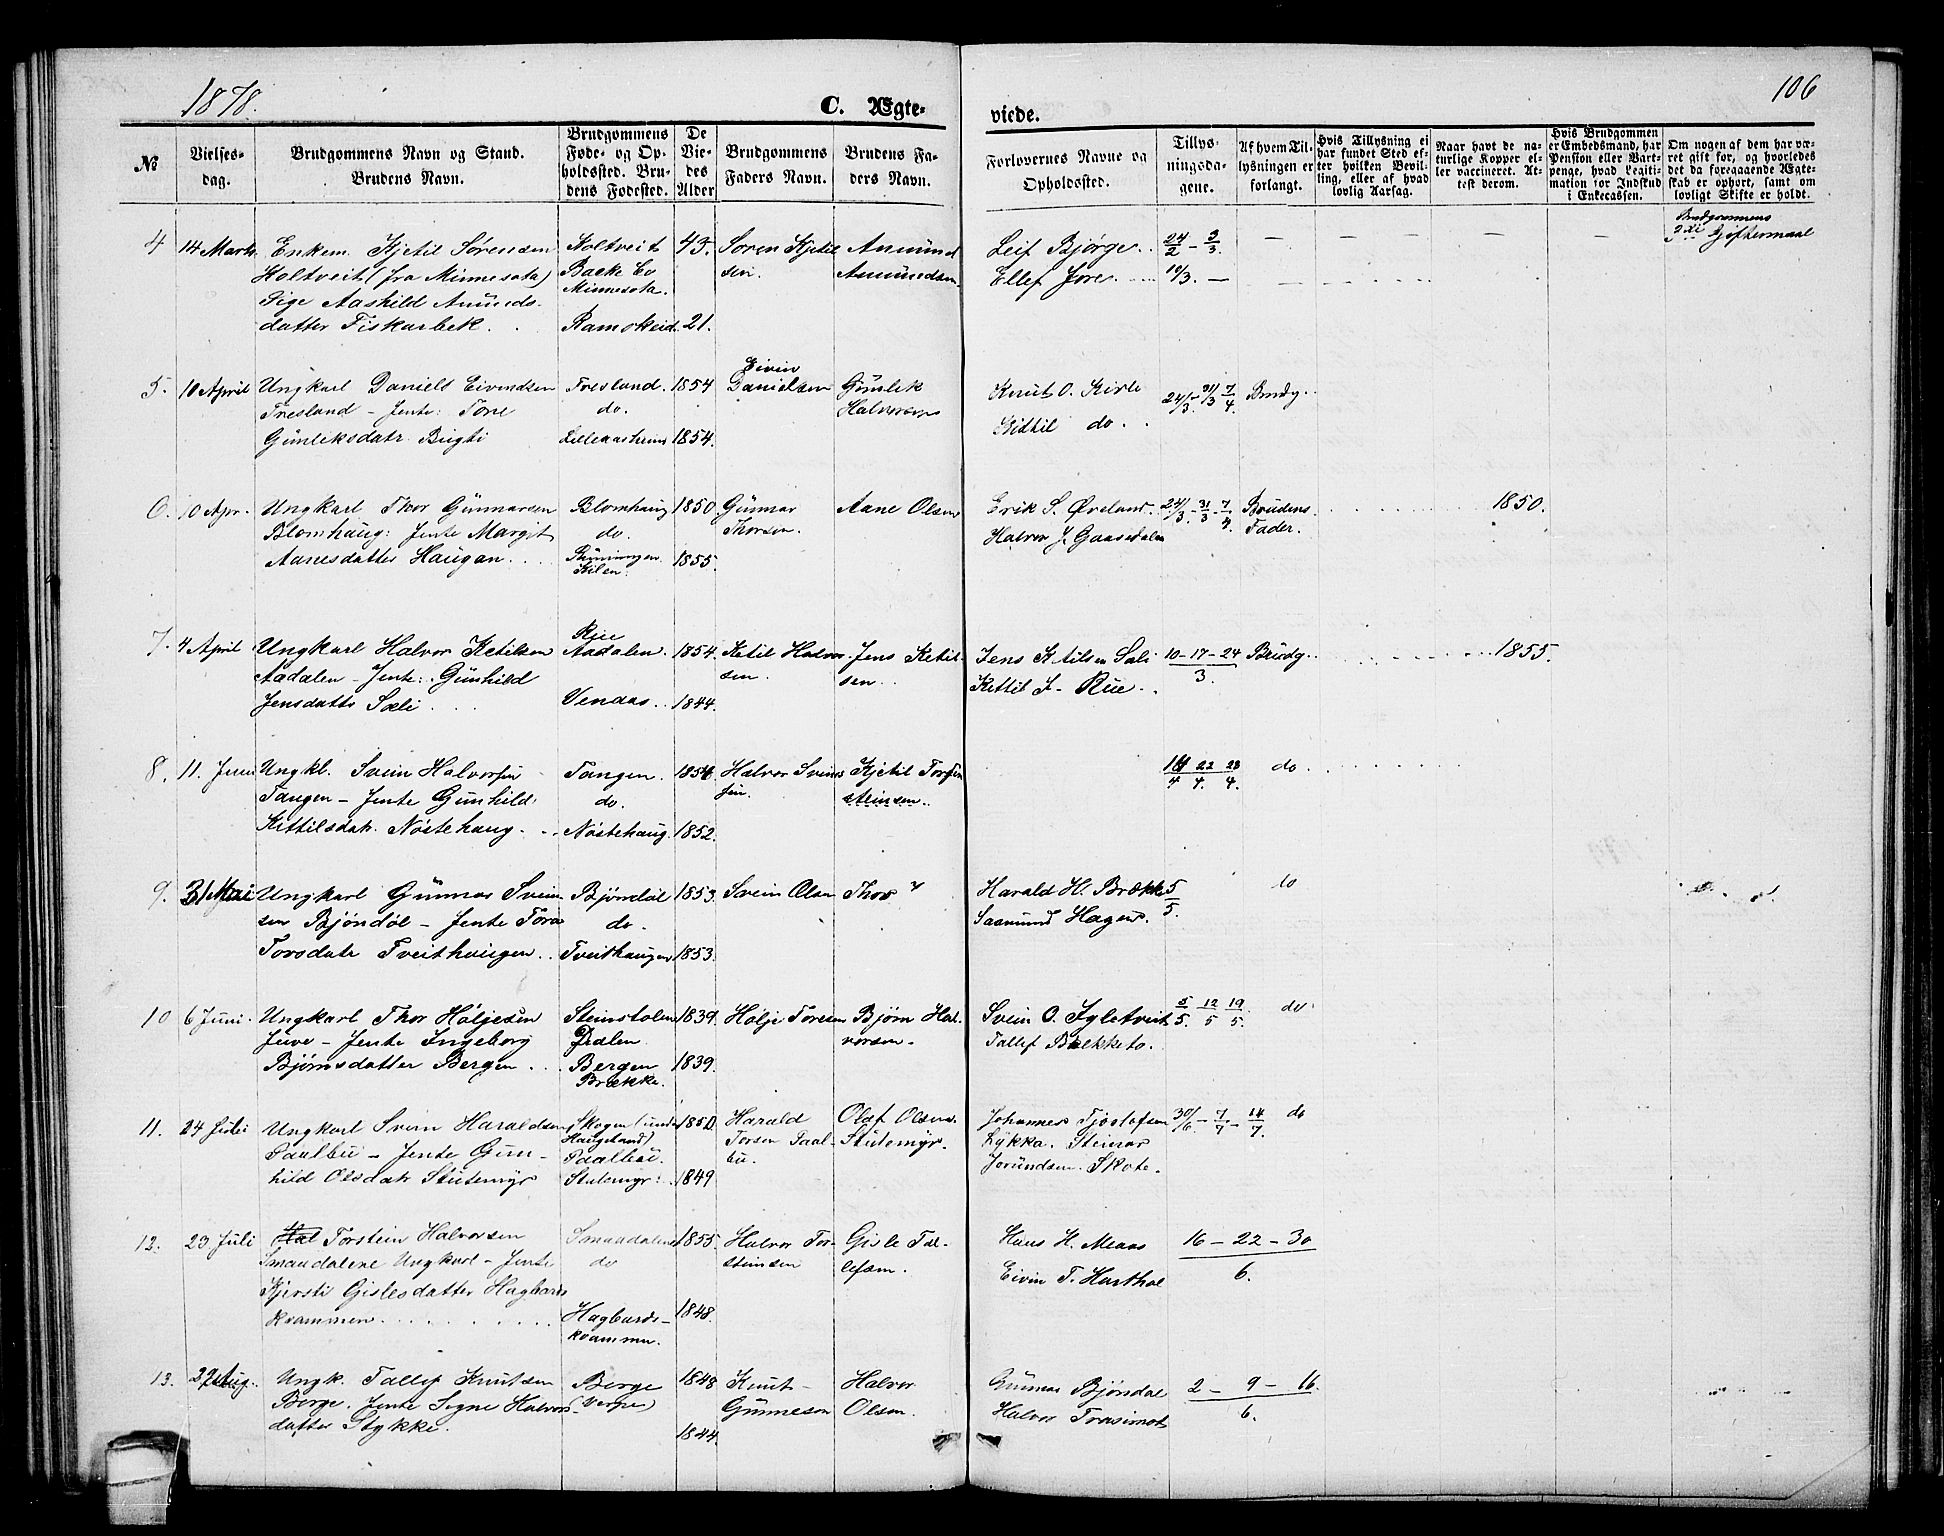 1878.
C. Ægte-
viede.
106
№
Vielses-
dag.
Brudgommens Navn og Stand.
Brudens Navn.
Brudgommens
Føde- og Op-
holdssted. Bru-
dens Fødested.
De
Vie-
des
Alder
Brudgommens
Faders Navn.
Brudens Fa-
ders Navn.
Forlovernes Navne og
Opholdssted.
Tillys-
ningsda-
gene.
Af hvem Til-
lysningen er
forlangt.
Hvis Tillysning ei
har fundet Sted ef-
ter hvilken Bevil-
ling, eller af hvad
lovlig Aarsag.
Naar havt de na-
turlige Kopper el-
ler vaccineret. At-
test derom.
Hvis Brudgommen
er Embedsmand, har
Pension eller Vart-
penge, hvad Legiti-
mation for Indskud
i Enkecassen.
Om nogen af dem har væ-
ret gift før, og hvorledes
det da foregaaende Ægte-
skab er ophørt, samt om
lovligt Skifte er holdt.
4
14 Marts
Enkem. Kjetil Sørensen
Holtveit (fra Minnesota)
Pige Aashild Amunds-
datter Fiskarbek.
Holtveit
Minnesota.
Ramskeid.
43.
21.
Søren Kjetil
sen.
Amund
Amundsen
Leif Bjørge.
Ellef Jore.
24/2 - 3/3
10/3. —
Brudgommens
Gjftermaal
5.
10 April
Ungkarl Daniels Eivendsen
Tresland - Jente: Tone
Gunleksdatr. Bugti
Tresland.
do.
1854
1854.
Eivin
Danielsen
Gunlek
Halvorsen
Knut O. Kirle
Kittil do.
24/3. 31/3 7/4.
Brudg.
6.
10 Apr.
Ungkarl Thor Gunnarsen
Blomhaug: Jente Margit
Aanesdatter Haugan.
Blomhaug
do.
Kilen.
1850.
1855.
Gunnar
Thorsen.
Aane Olsen
Erik S. Øveland.
Halvor J. Gaasedalen
24/3. - 31/3 - 7/4
Brudens
Fader.
1850.
7.
4 April
Ungkarl Halvor Ketilsen
Aadalen - Jente: Gunhild
Jensdattr Sæli
Rue
Aadalen.
Vendaas.
1854.
1844.
Ketil Halvor-
sen.
Jens Ketil-
sen.
Jens Ketilsen Sæli
Kettil J. Rue.
10 - 17 - 24
3.
Brudg.
1855.
8.
11. Juni
Ungkl. Svein Halvorsen
Tangen - Jente Gunhild
Kittilsdatr. Nöstehaug.
Tangen.
do.
Nöstehaug.
1854.
1852.
Halvor Sveins
sen.
Kjetil Torfin
steinsen.
14/4 22/4. 28/4.
do
9.
31 Mai
Ungkarl Gunnar Svein
sen Bjöndöl - Jente Tora
Torsdatr Tveithaugen.
Bjöndöl
do.
Tveithaugen
1853.
1853.
Svein Olsen
Thor
Harald H. Brække
Saamund Hagen.
5/5.
do
10
6 Juni.
Ungkarl Thor Höljesen
Juve - Jente Ingeborg
Bjørnsdatter Bergen.
Steinstolen
Dalen
Bergen
Brække.
1839.
1839.
Holje Toresen
Bjørn Hal-
vorsen.
Svein O. Igletveit
Tallef Brekketo.
5/5. 12/5 19/5.
do
11.
24 Juli
Ungkarl Svein Haraldsen
Paalbu - Jente Gun-
hild Olsdatr Stutemyr
Skogen (under
Haugeland)
Paalbu.
Stutemyr.
1850
1849
Harald
Torsen Paal
bu.
Olaf Olsen
Stutemyr.
Johannes Tjostolfsen
Lykka. Steinar
Jorundsen. Skote.
30/6. - 7/7 - 14/7.
do
12.
23 Juli
Torstein Halvorsen
Smaadalene Ungkarl - Jente
Kjersti Gislesdatter Hagbards
kvammen.
Smaadalene
do
Hagbards-
kvammen.
1855.
1848.
Halvor Tor-
steinsen
Gisle Tal-
lefsen.
Hans H. Meaas
Eivin T. Harthoe
16 - 22 - 30
6.
13.
Aug.
Ungk. Tallef Knutsen
Berge. Jente Signe Halvors-
datter Stykke.
Berge
1848
1844.
Knut
Gunneson
Halvor
Olsen.
Gunnar Bjöndal
Halvor Trosimot
2 - 9 - 16.
6.